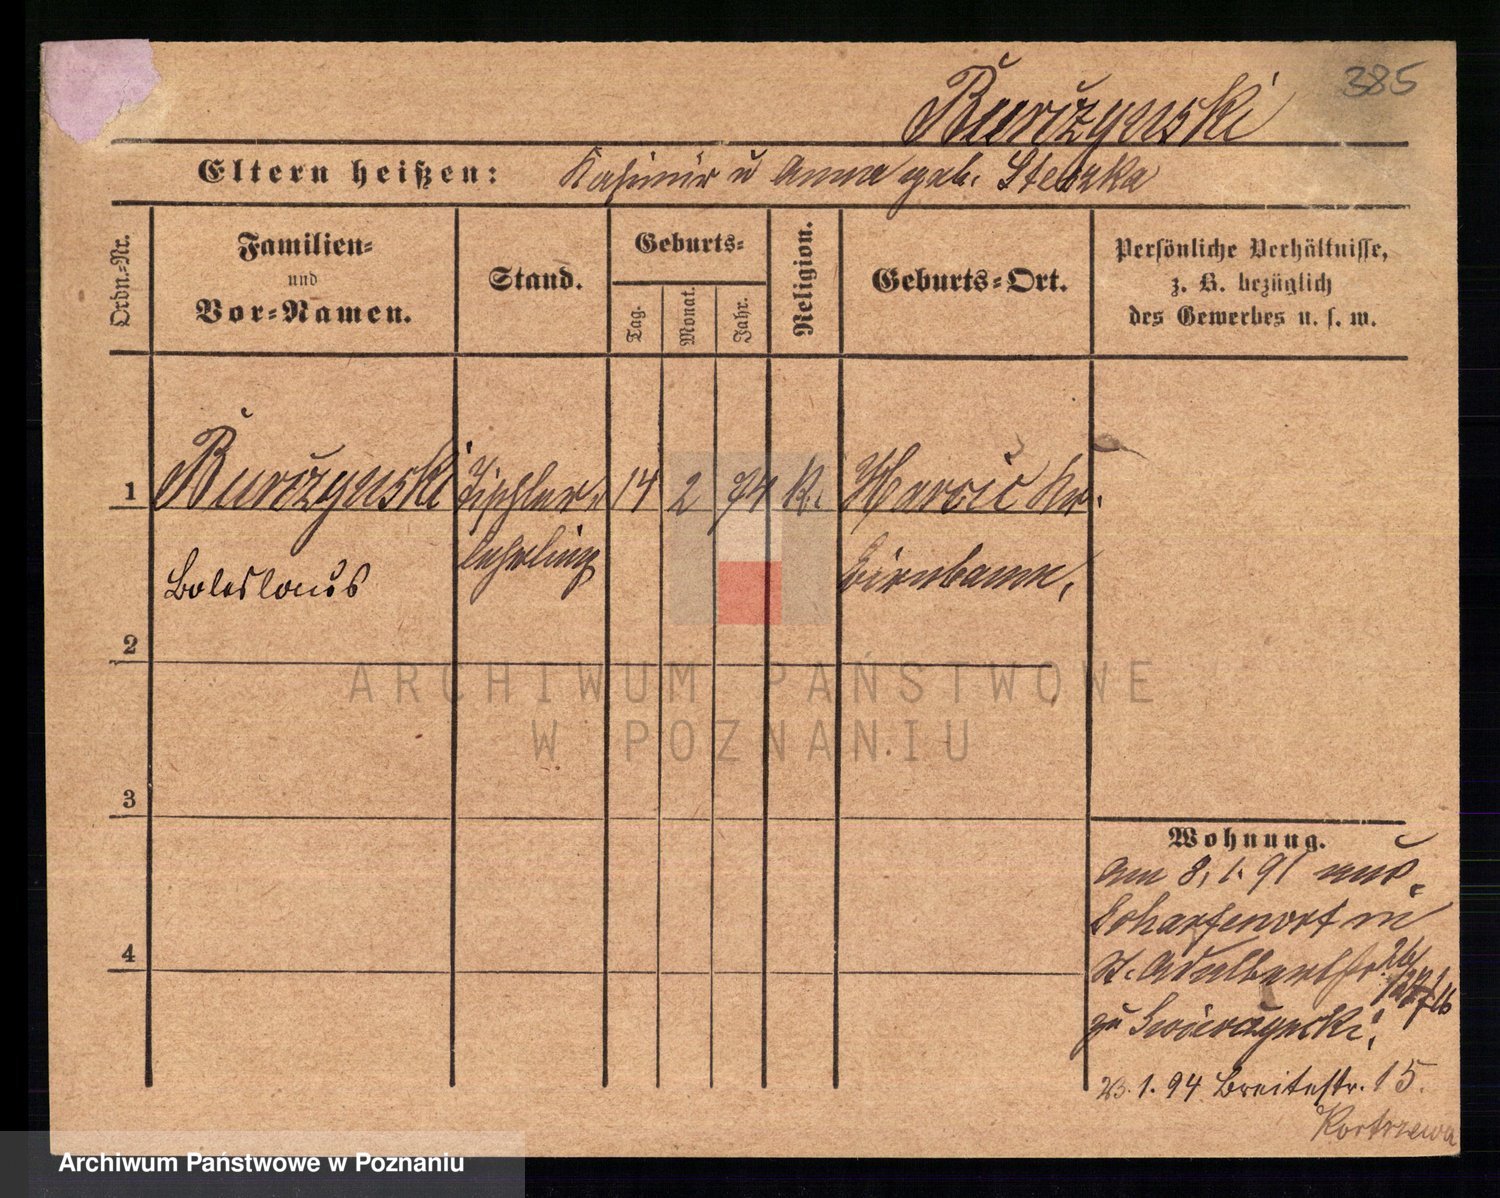 385
Burczynski
Eltern heißen: Kasimir u Anna geb. Steczka
Ordn.-Nr.
Familien-
und
Vor-Namen.
Stand.
Geburts-
Tag.
Monat.
Jahr.
Religion.
Geburts-Ort.
Persönliche Verhältnisse,
z. B. bezüglich
des Gewerbes u. s. w.
1 Burczynski Tischler- 14 2 74 K. Kr.
Boleslaus lehrling Birnbaum,
2
3
4
ARCHIWUM PAŃSTWOWE
W POZNANIU
Wohnung.
am 8.1.91 aus
Scharfenort in
St. Adalbertstr.
zu
23.1.94 Breitestr. 15.
Kortrzewa
Archiwum Państwowe w Poznaniu